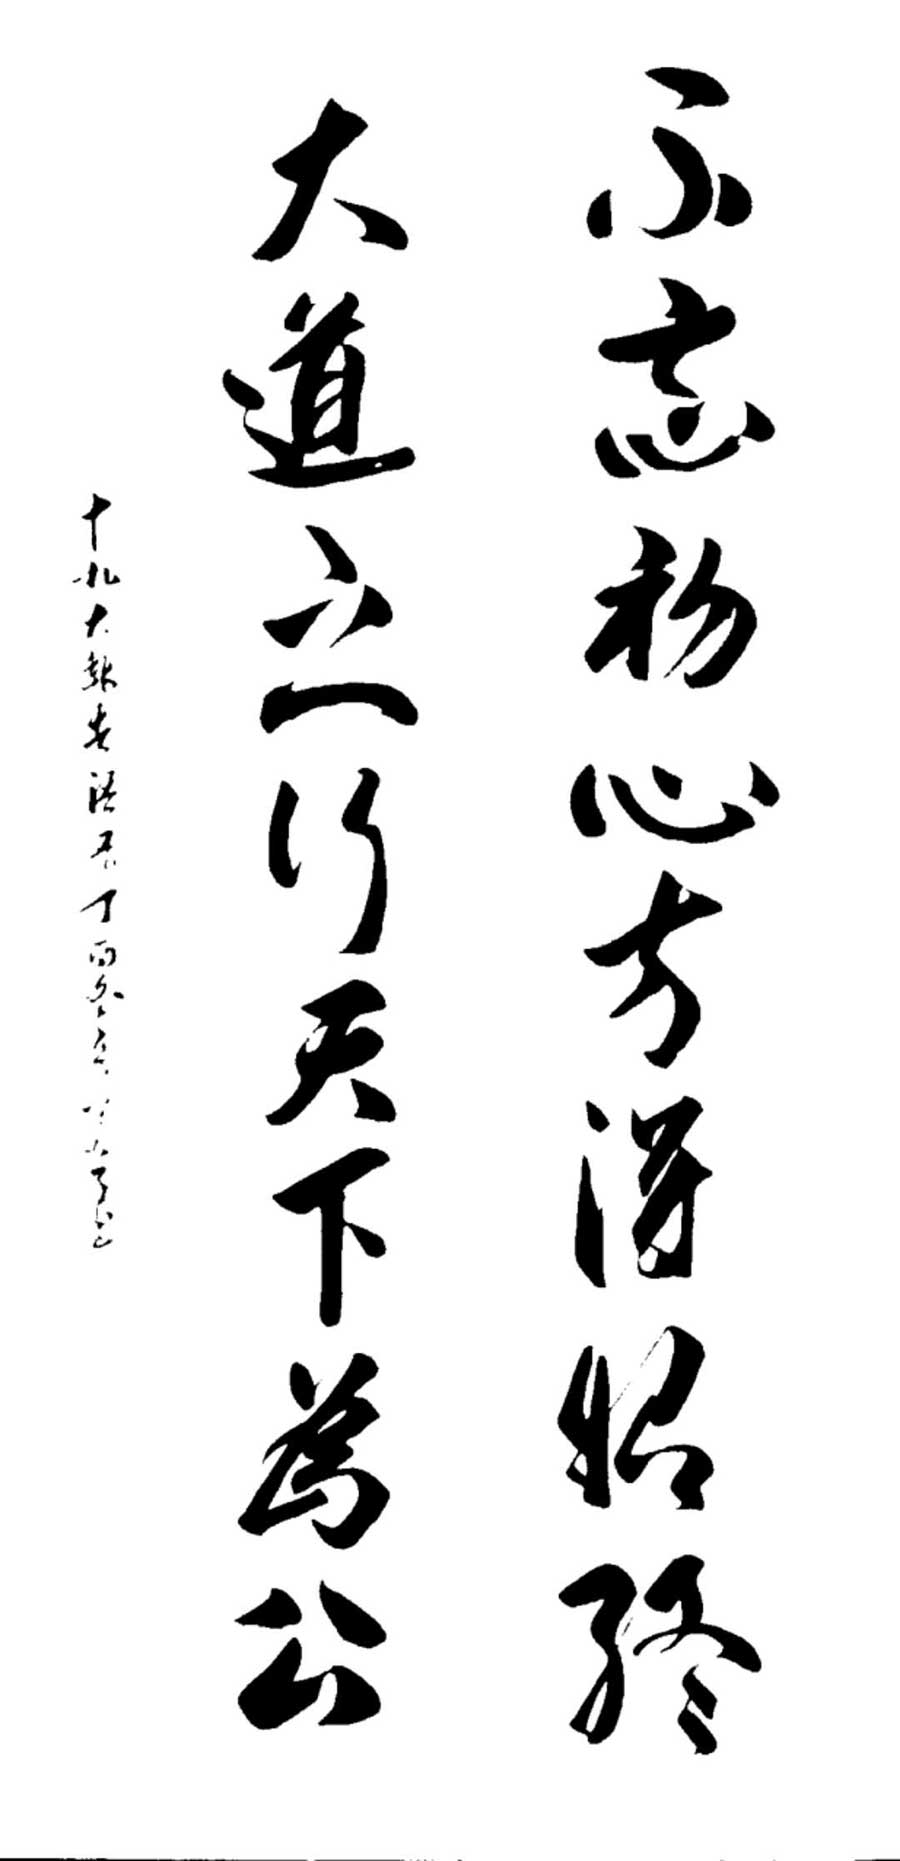 不忘初心方得始終
大道之行天下為公
十九大報告語丁酉冬